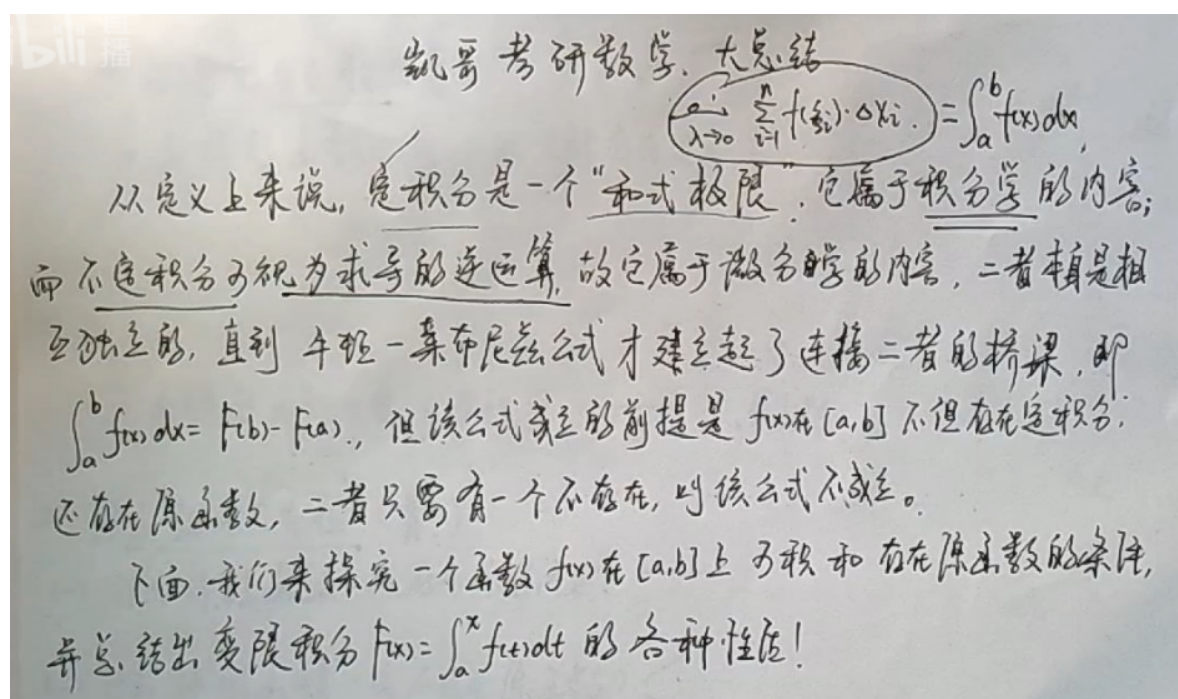 bili 播
凯哥考研数学、大总结
lim λ→0 n∑i=1 f(ξi)·Δxi. = ∫_a^b f(x)dx,
从定义上来说, 定积分是一个"和式极限". 它属于积分学的内容;
而不定积分可视为求导的逆运算, 故它属于微分学的内容, 二者本身是相
互独立的, 直到 牛顿-莱布尼兹公式才建立起了连接二者的桥梁, 即
∫_a^b f(x)dx = F(b)-F(a)., 但该公式成立的前提是 f(x)在[a,b]不但存在定积分.
还存在原函数, 二者只要有一个不存在, 则该公式不成立。
下面.我们来探究一个函数 f(x)在[a,b]上可积和存在原函数的条件,
并总结出变限积分F(x)=∫_a^x f(t)dt 的各种性质!